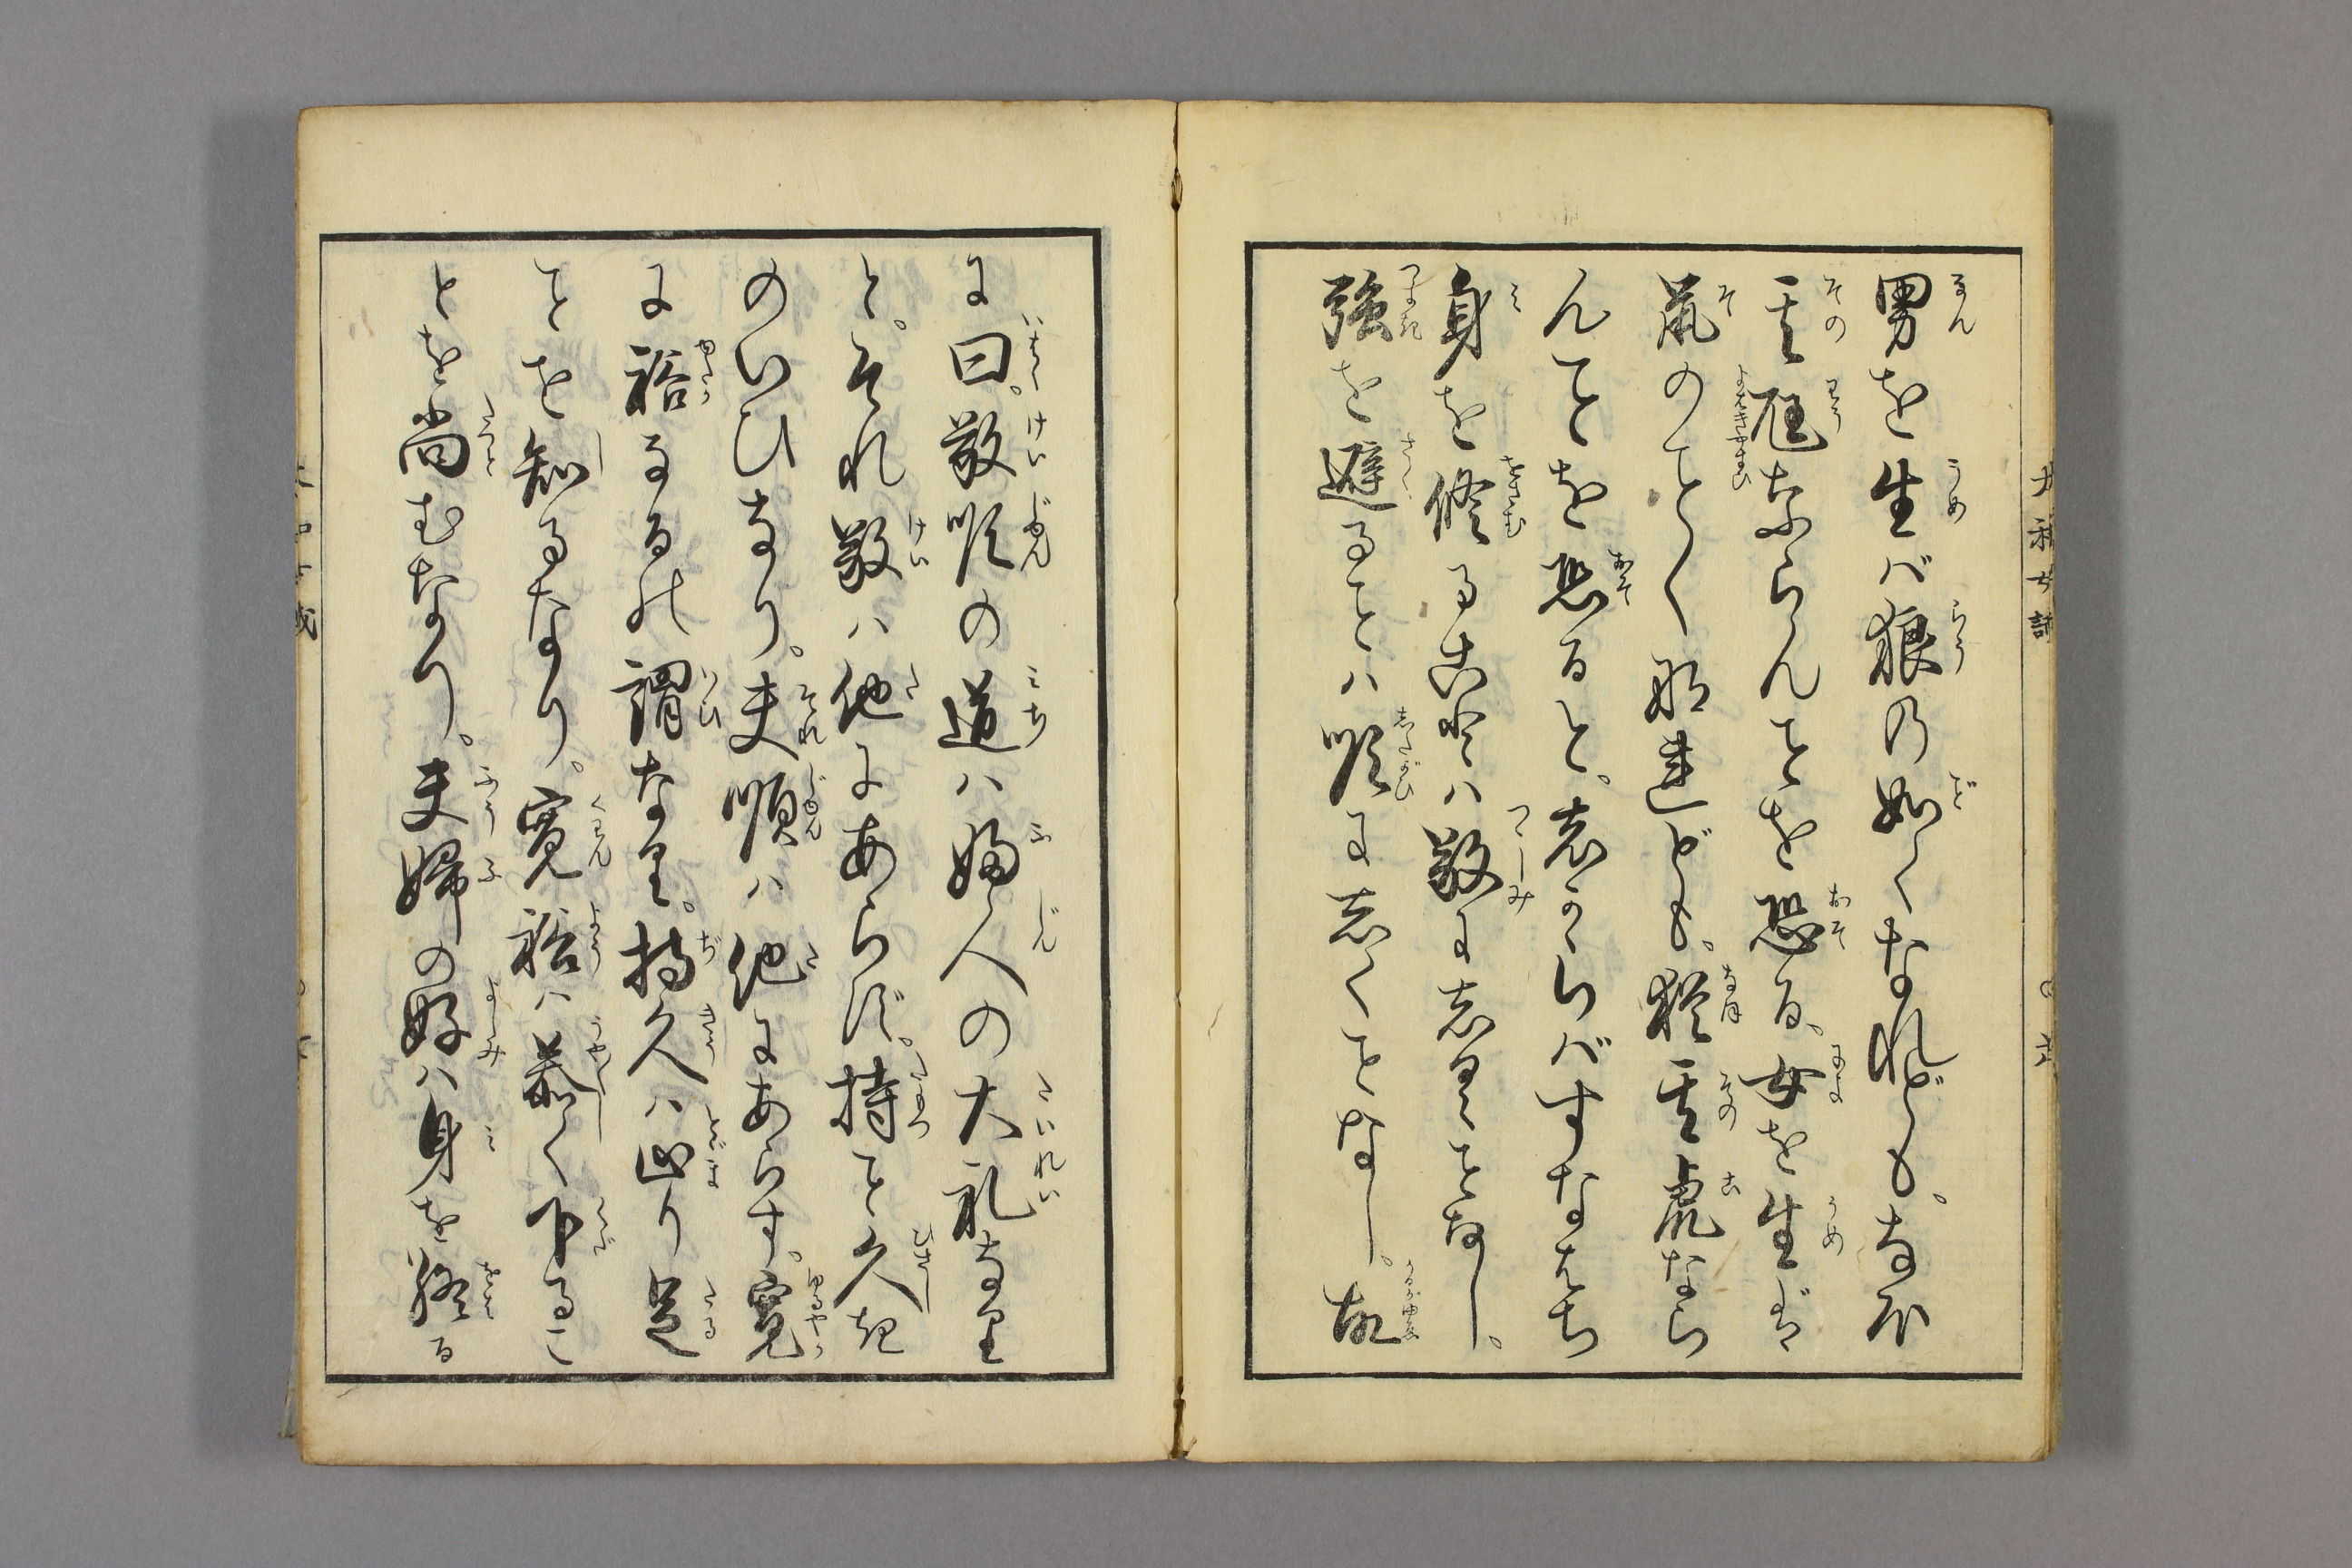 男を生バ狼の如くなれども。なほ
其尫ならんことを恐る。女を生ば
鼠のごとくなれども。猶其虎なら
んことを恐ると。志からバすなはち
身を修るにハ敬に志くはなし。
強を避ることハ順に志くことなし。故
に曰。敬順の道ハ婦人の大礼なり
と。それ敬ハ他にあらず。持こと久き
のいひなり。夫順ハ他にあらす。寛
に裕なるの謂なり。持久ハ止り足
ことを知るなり。寛裕ハ恭く下るこ
とを尚むなり。夫婦の好ハ身を終る